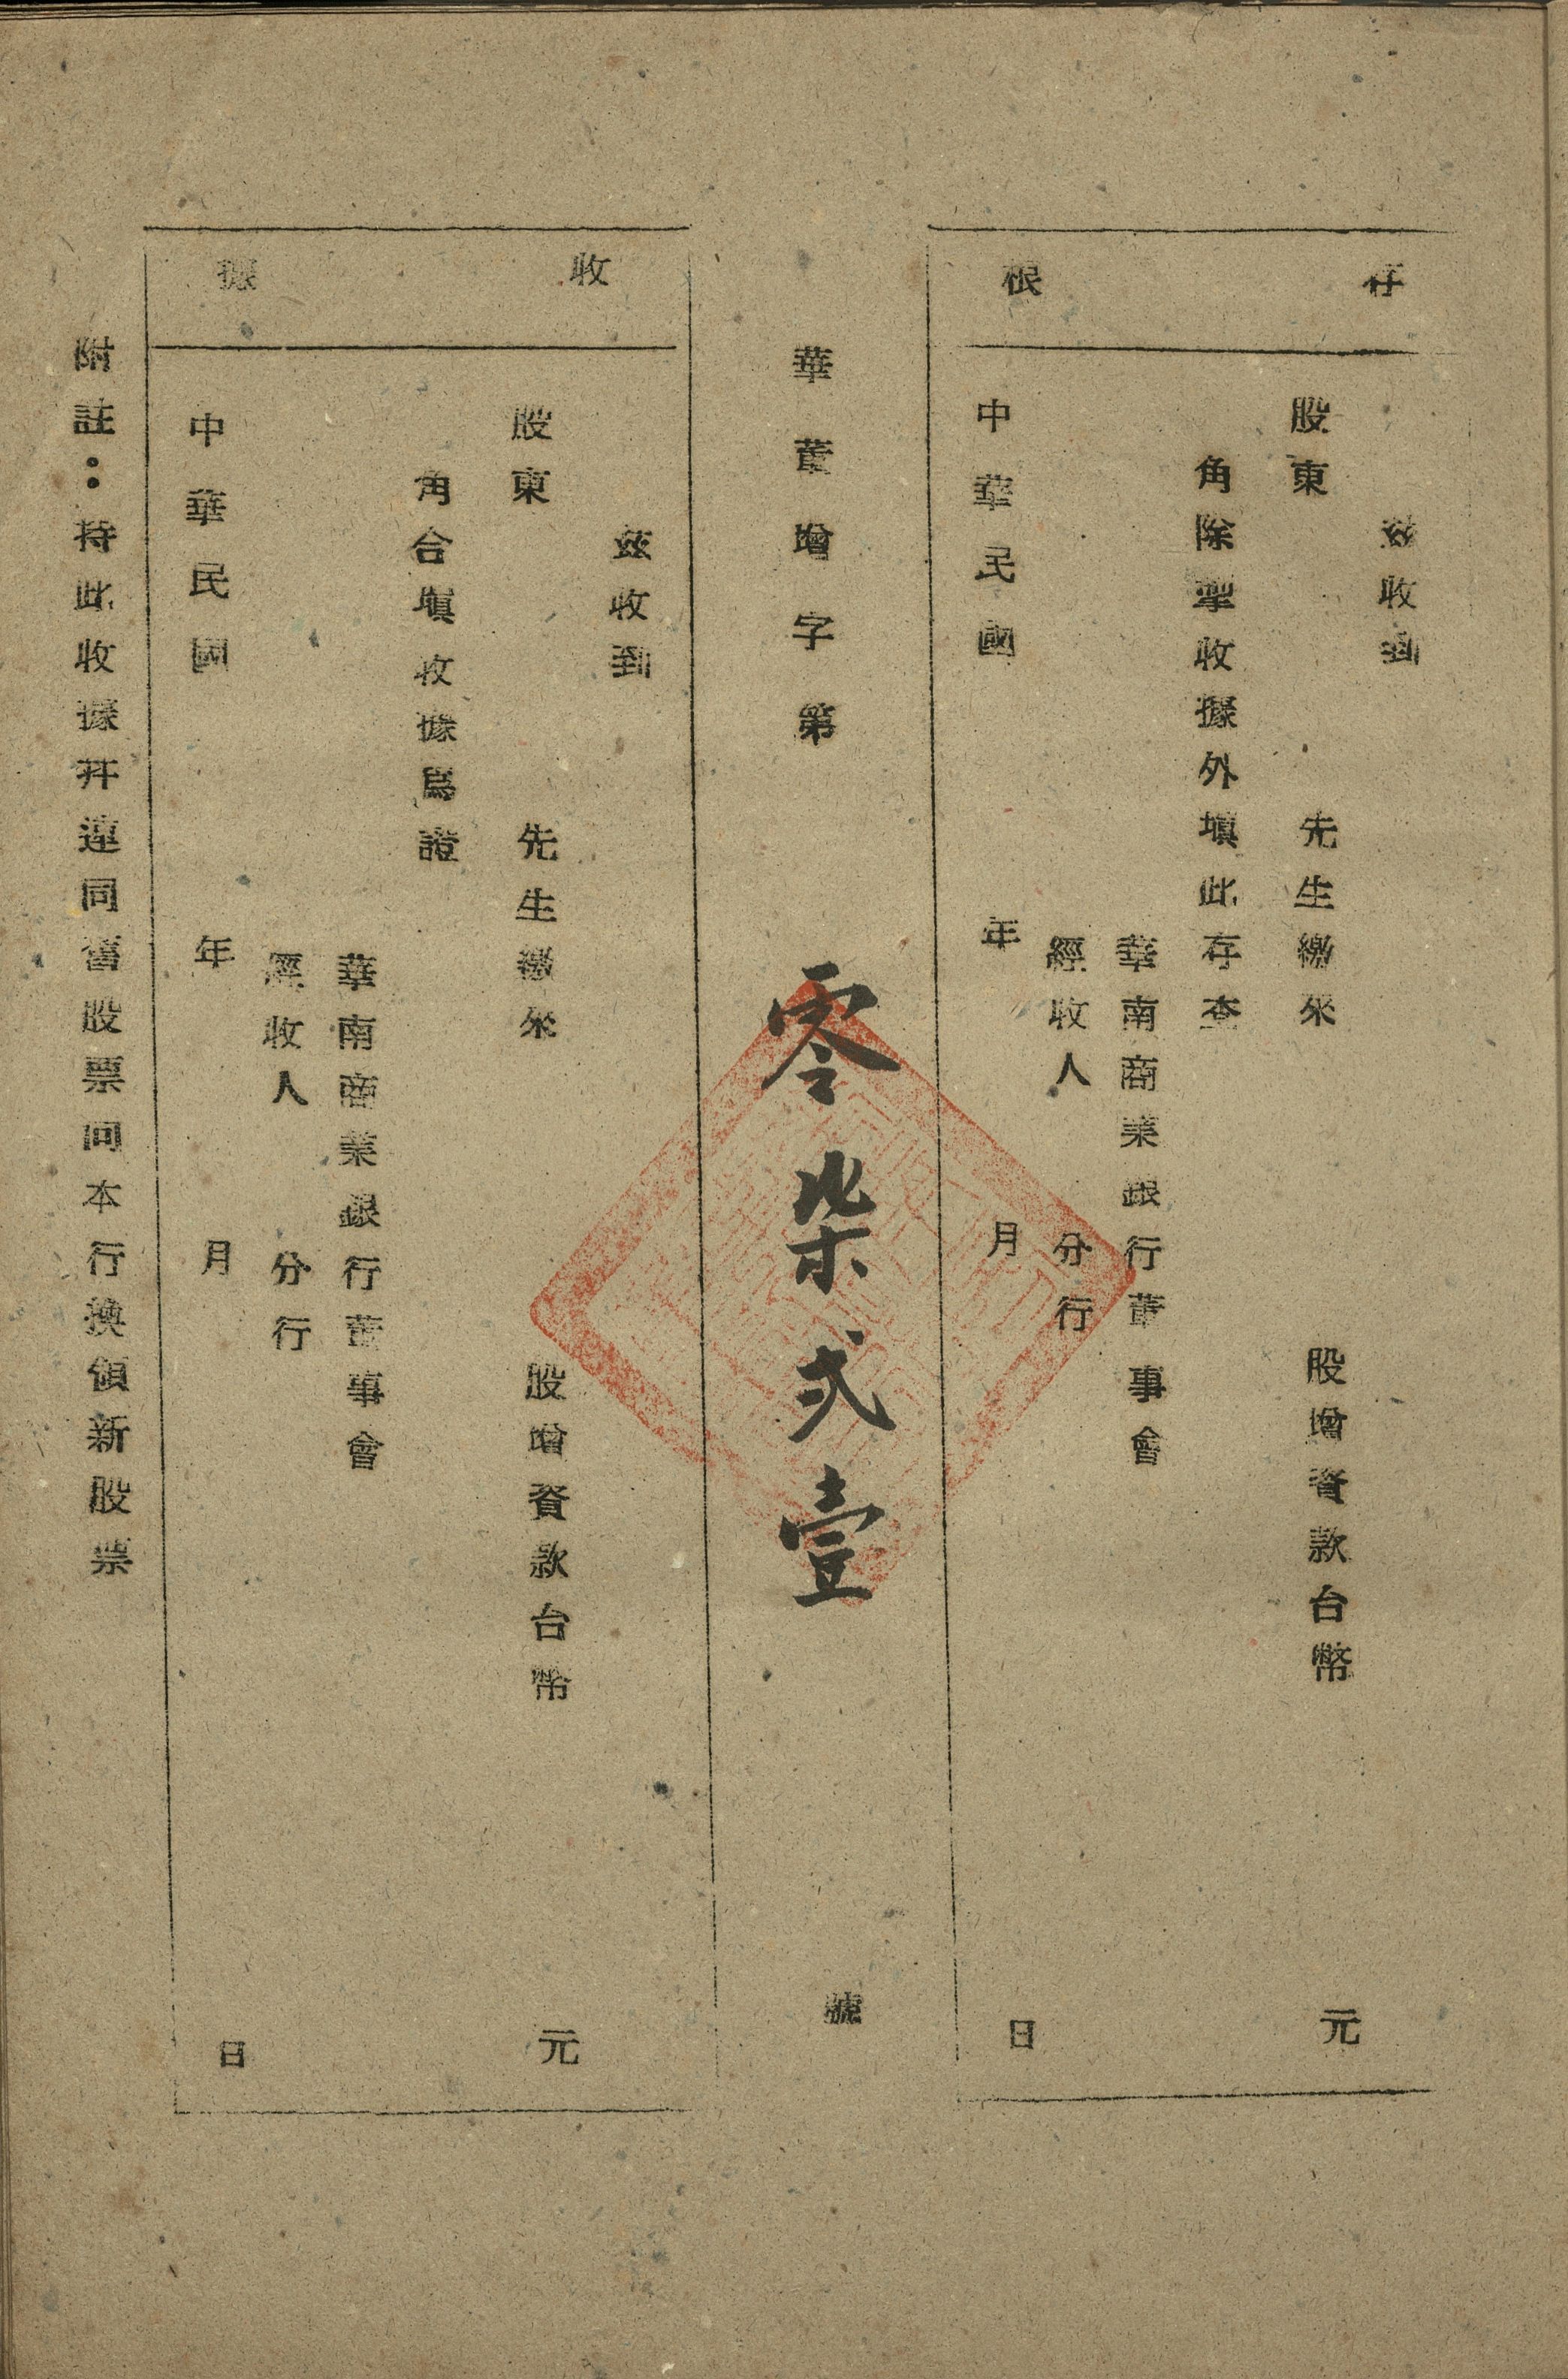 存根
茲收到
股東 先生繳來 股增資款台幣 元
角除掣收據外塡此存查
華南商業銀行董事會
經收人 分行
中華民國 年 月 日
華董增字第 零柒弍壹 號
收據
茲收到
股東 先生繳來 股增資款台幣 元
角合塡收據爲證
華南商業銀行董事會
經收人 分行
中華民國 年 月 日
附註：持此收據幷連同舊股票向本行換領新股票